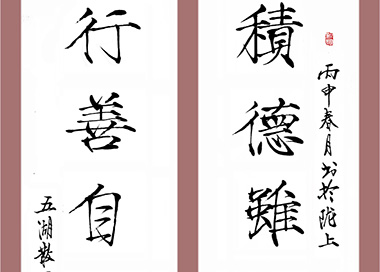 丙申春月书於陇上
積德雖
行善自
五湖散